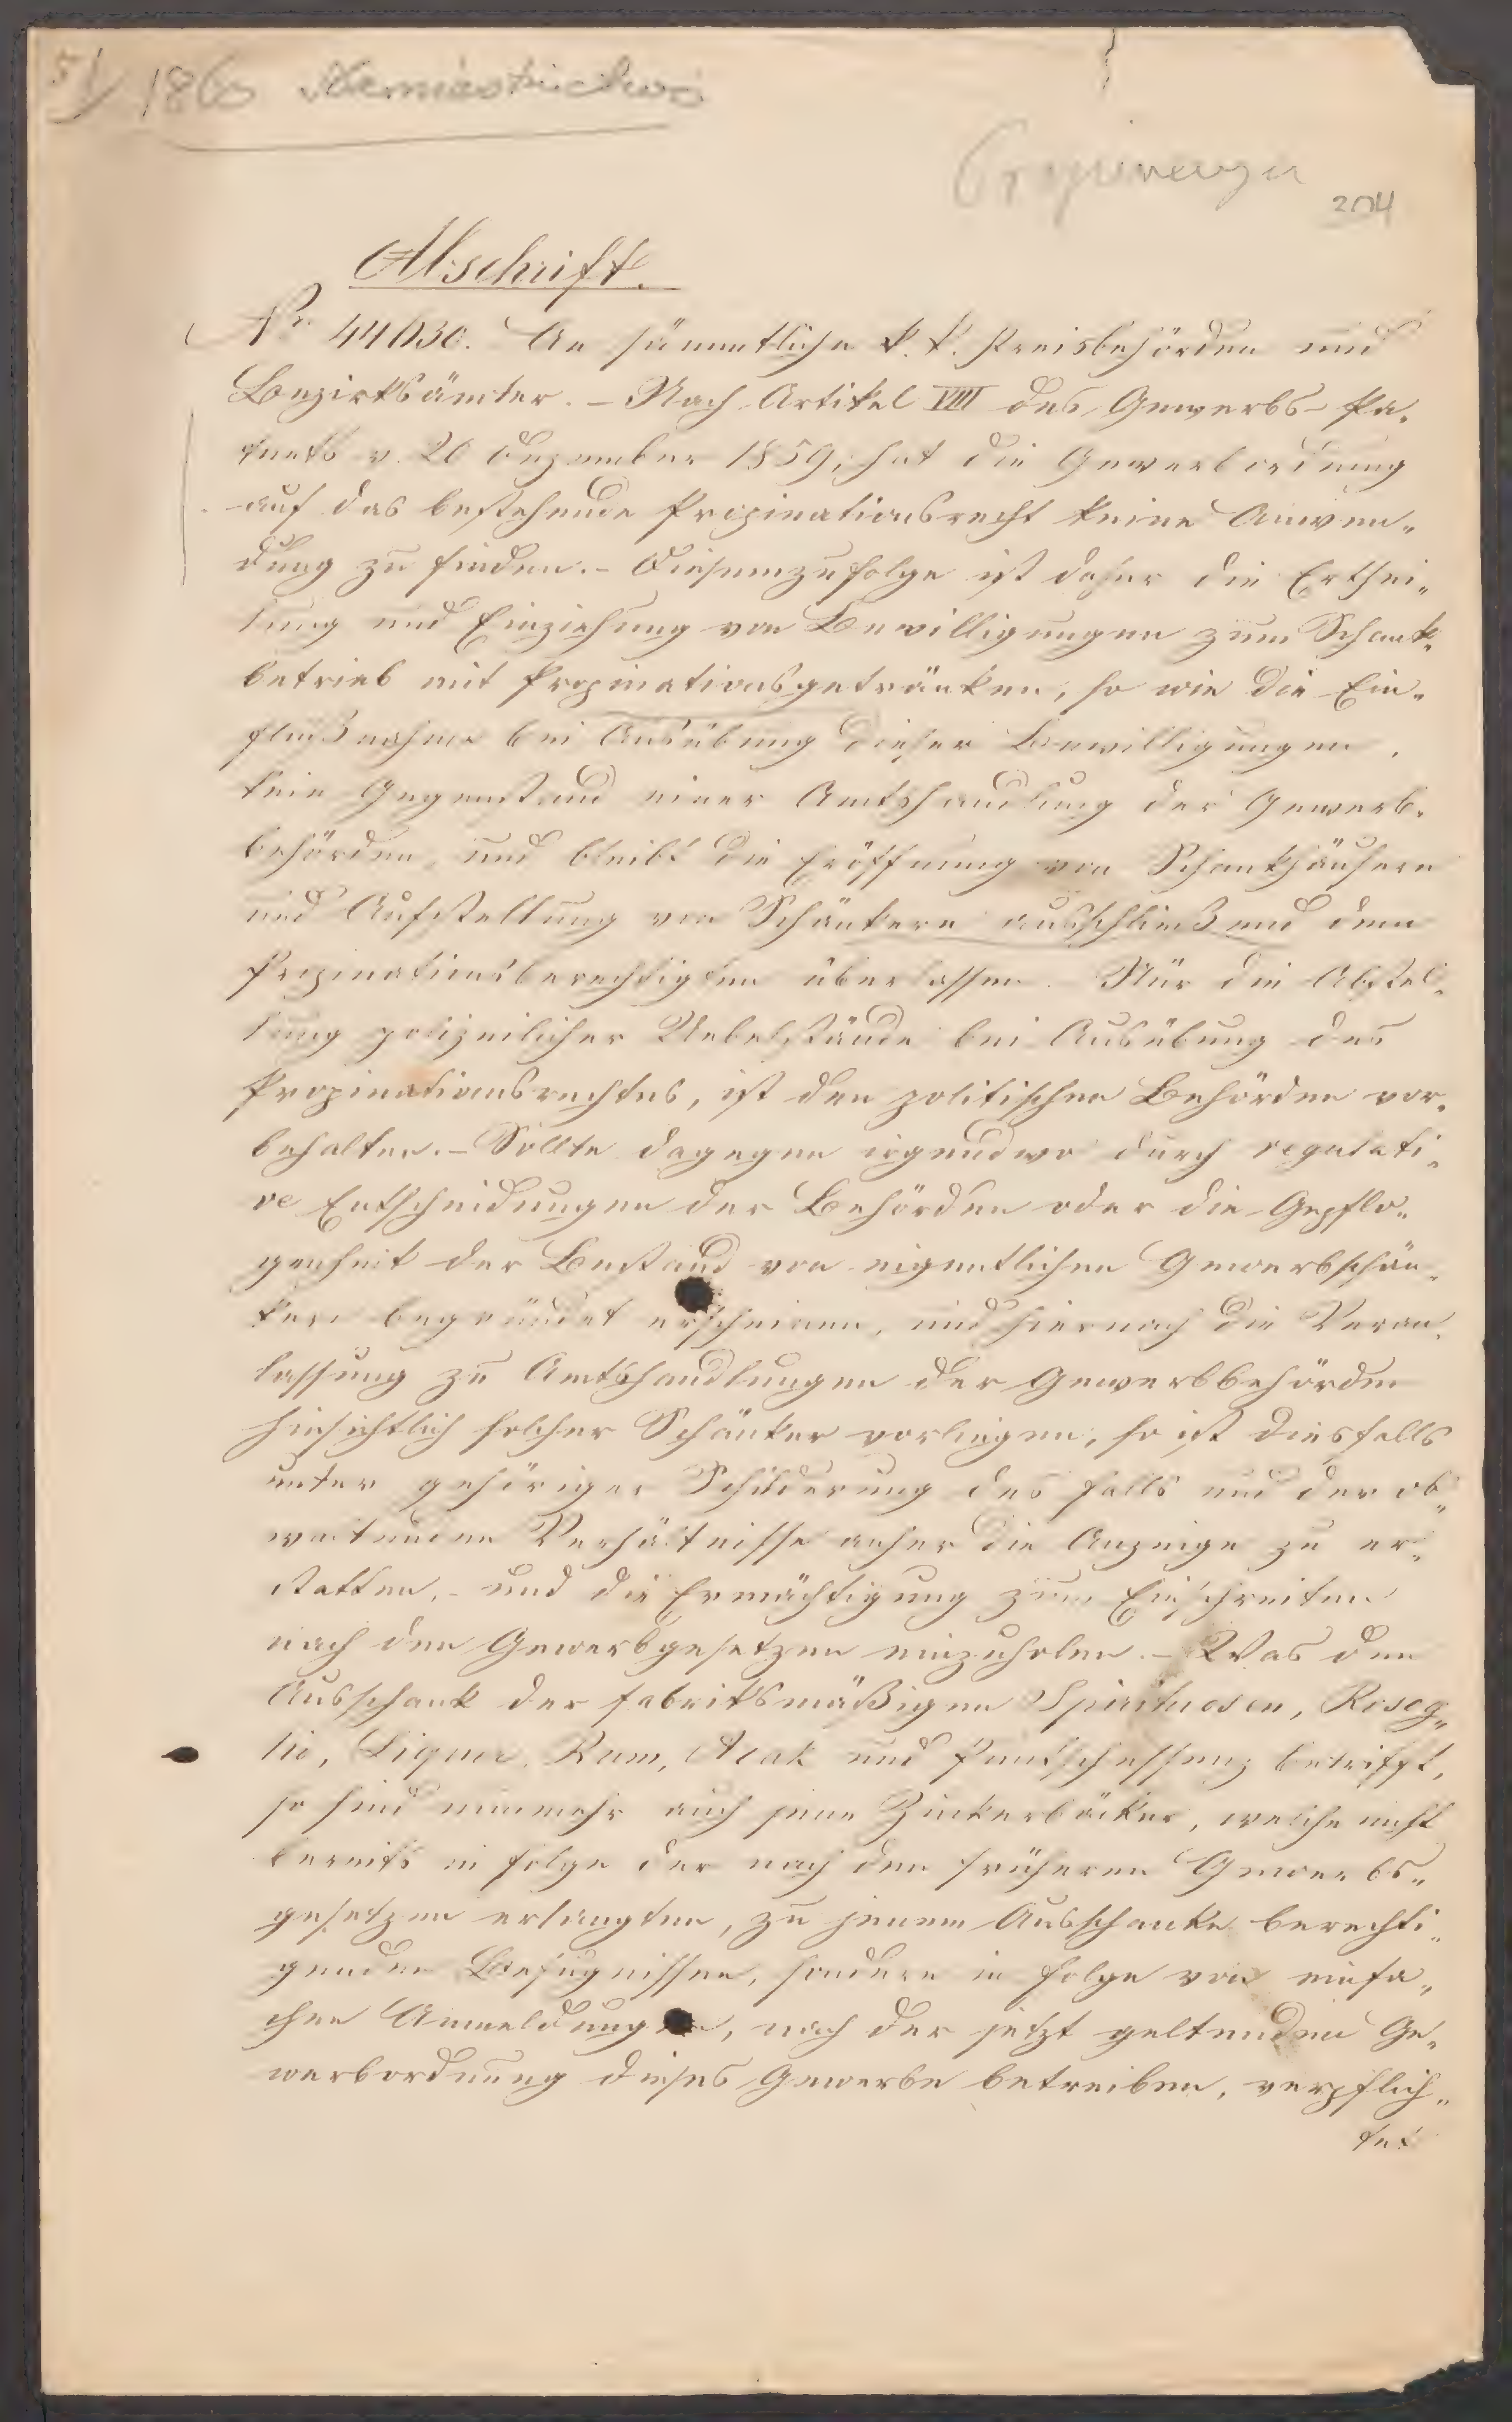 51/ 1860
204
Abschrift.
Nr 44030. An sämmtliche k. k. Kreisbehörden und
Bezirksämter. – Nach Artikel VIII des Gewerbs-Pa„
tents v. 20 Dezember 1859, hat die Gewerbordnung
auf das bestehende Propinationsrecht keine Anwen„
dung zu finden. – Diesemzufolge ist daher die Erthei„
lung und Einziehung von Bewilligungen zum Schank„
betrieb mit Propinationsgetränken, so wie die Ein„
flußnahme bei Ausübung dieser Bewilligungen,
kein Gegenstand einer Amtshandlung der Gewerb„
behörden, und bleibt die Eröffnung von Schankhäusern
und Aufstellung von Schänkern ausschließend dem
Propinationsberechtigten überlassen. – Nur die Abstel„
lung polizeilicher Uebelstände bei Ausübung des
Propinationsrechtes, ist den politischen Behörden vor„
behalten. – Sollte dagegen irgendwo durch regulati„
ve Entscheidungen der Behörden oder die Gepflo„
genheit der Bestand von eigentlichen Gewerbschän„
kern begründet erscheinen, und hiernach die Veran„
lassung zu Amtshandlungen der Gewerbbehörden
hinsichtlich solcher Schänker vorliegen, so ist diesfalls
unter gehöriger Schilderung des Falls und der ob„
waltenden Verhältnisse anher die Anzeige zu er„
statten, – und die Ermächtigung zum Einschreiten
nach den Gewerbgesetzen einzuholen. – Was den
Ausschank der fabriksmäßigen Spirituosen, Rosog„
lio, Liqueur, Rum, Arak und Punschessenz betrifft,
so sind nunmehr auch jene Zuckerbäcker, welche nicht
bereits in Folge der nach den früheren Gewerbs„
gesetzen erlangten, zu jenem Ausschanke berechti„
genden Befugnissen, sondern in Folge von einfa„
chen Anmeldungen, nach der jetzt geltenden Ge„
werbordnung dieses Gewerbe betreiben, verpflich„
tet